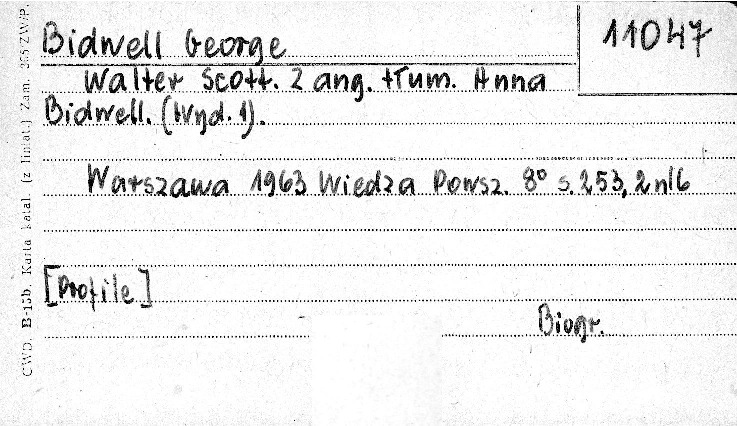 11047
Bidwell George
Walter Scott. Z ang. tłum. Anna
Bidwell. (Wyd. 1).
Warszawa 1963 Wiedza Powsz. 8° s. 253, 2 nlb
[Profile]
Biogr.
CWD. B-13b. Karta katal. (z liniat.) Zam. 265 ZWP.